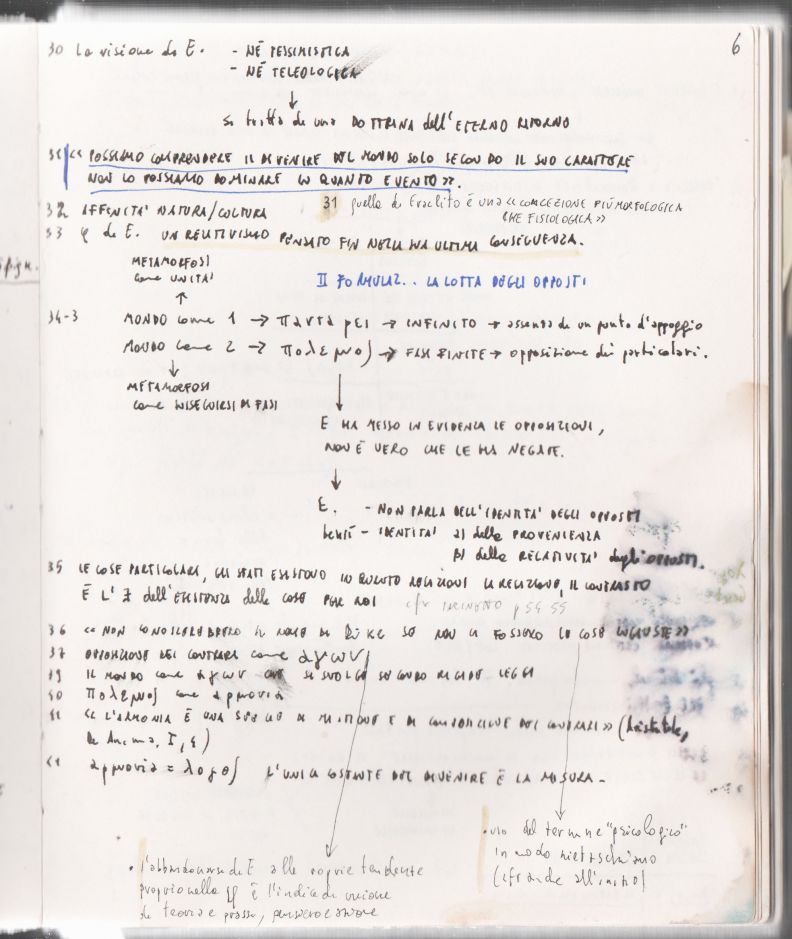 6
30 La visione di E. - NÉ PESSIMISTICA
- NÉ TELEOLOGICA
↓
si tratta di una DOTTRINA dell'ETERNO RITORNO
31 << POSSIAMO COMPRENDERE IL DIVENIRE DEL MONDO SOLO SECONDO IL SUO CARATTERE
NON LO POSSIAMO DOMINARE IN QUANTO EVENTO >>.
31 quella di Eraclito è una << CONCEZIONE PIÙ MORFOLOGICA
CHE FISIOLOGICA >>
32 AFFINITA' NATURA/CULTURA
33 φ di E. UN RELATIVISMO PENSATO FIN NELLA SUA ULTIMA CONSEGUENZA.
METAMORFOSI
come UNITA'
↑
II FORMULAZ.. LA LOTTA DEGLI OPPOSTI
34-3 MONDO come 1 → παντα ρει → INFINITO → assenza di un punto d'appoggio
MONDO come 2 → πολεμος → FASI FINITE → opposizione dei particolari.
↓
METAMORFOSI
come INSEGUIRSI DI FASI
↓
E HA MESSO IN EVIDENZA LE OPPOSIZIONI,
NON È VERO CHE LE HA NEGATE.
↓
E. - NON PARLA DELL'IDENTITA' DEGLI OPPOSTI
bensì - IDENTITA' α) della PROVENIENZA
β) della RELATIVITA' degli OPPOSTI.
35 LE COSE PARTICOLARI, GLI STATI ESISTONO IN QUANTO RELAZIONI LA RELAZIONE, IL CONTRASTO
È L' dell'ESISTENZA delle COSE PER NOI cfr p 54 55
36 << NON CONOSCEREBBERO IL NOME DI DIKE SE NON CI FOSSERO LE COSE INGIUSTE >>
37 OPPOSIZIONE DEI CONTRARI come αγων
39 IL MONDO come αγων CHE SI SVOLGE SECONDO RIGIDE LEGGI
40 πολεμος come αρμονια
41 << L'ARMONIA È UNA SPECIE DI MISTIONE E DI COMPOSIZIONE DEI CONTRARI >> (Aristotele,
De Anima, I, 4)
41 αρμονια = λογος L'UNICA COSTANTE DEL DIVENIRE È LA MISURA -
• uso del termine "psicologico"
in modo nietzschiano
(cfr anche all'inizio)
• l'abbandonarsi di E alle proprie tendenze
proprio nella φ è l'indice di unione
di teoria e prassi, pensiero e azione